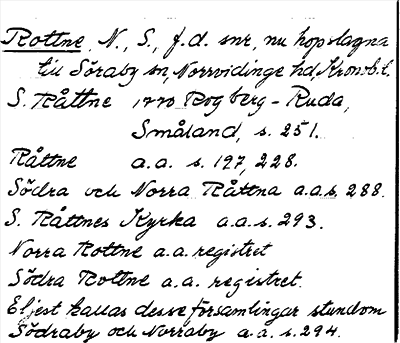 Rottne, N., S., f.d. snr, nu hopslagna
till Söraby sn, Norrvidinge hd, Kronob.l.
S. Råttne 1770 Rogberg-Ruda,
Småland, s. 251.
Råttne a.a. s. 197, 228.
Södra och Norra Råttna a.a.s. 288.
S. Råttnes Kyrka a.a.s. 293.
Norra Rottne a.a. registret
Södra Rottne a.a. registret.
Eljest kallas dessa församlingar stundom
Södraby och Norraby a.a. s. 294.